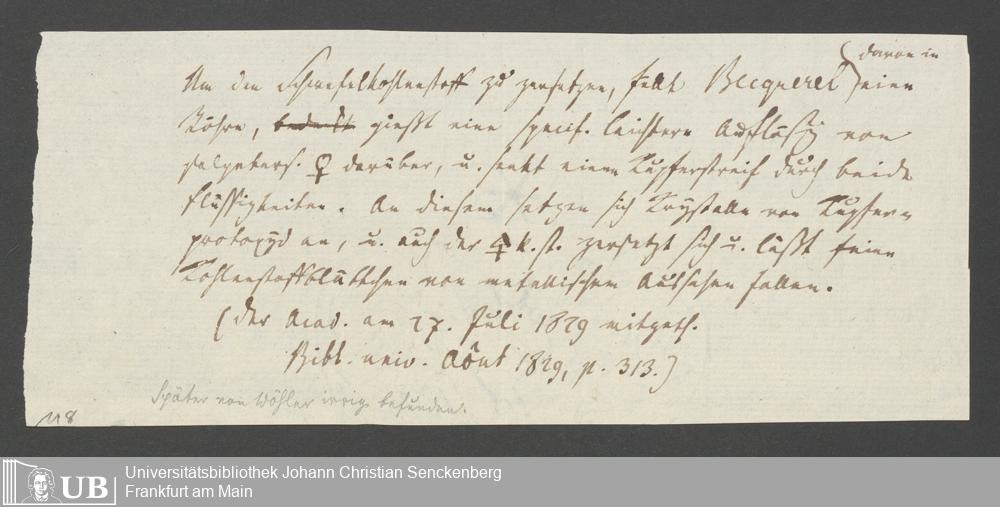 davon in
Um den Schwefelkohlenstoff zu zersetzen, füllt Becquerel eine
Röhre, bedeckt gießt eine specif. leichtere Auflösg von
salpeters. ♀ darüber, u. senkt einen Kupferstreif durch beide
Flüssigkeiten. An diesem setzen sich Krystalle von Kupfer-
protoxyd an, u. auch der 🜍 k.st. zersetzt sich u. läßt feine
Kohlenstoffblättchen von metallischem Aussehen fallen.
(Der Acad. am 27. Juli 1829 mitgeth.
Bibl. univ. Août 1829, p. 313.)
Später von Wöhler irrig befunden.
118
Universitätsbibliothek Johann Christian Senckenberg
Frankfurt am Main
UB